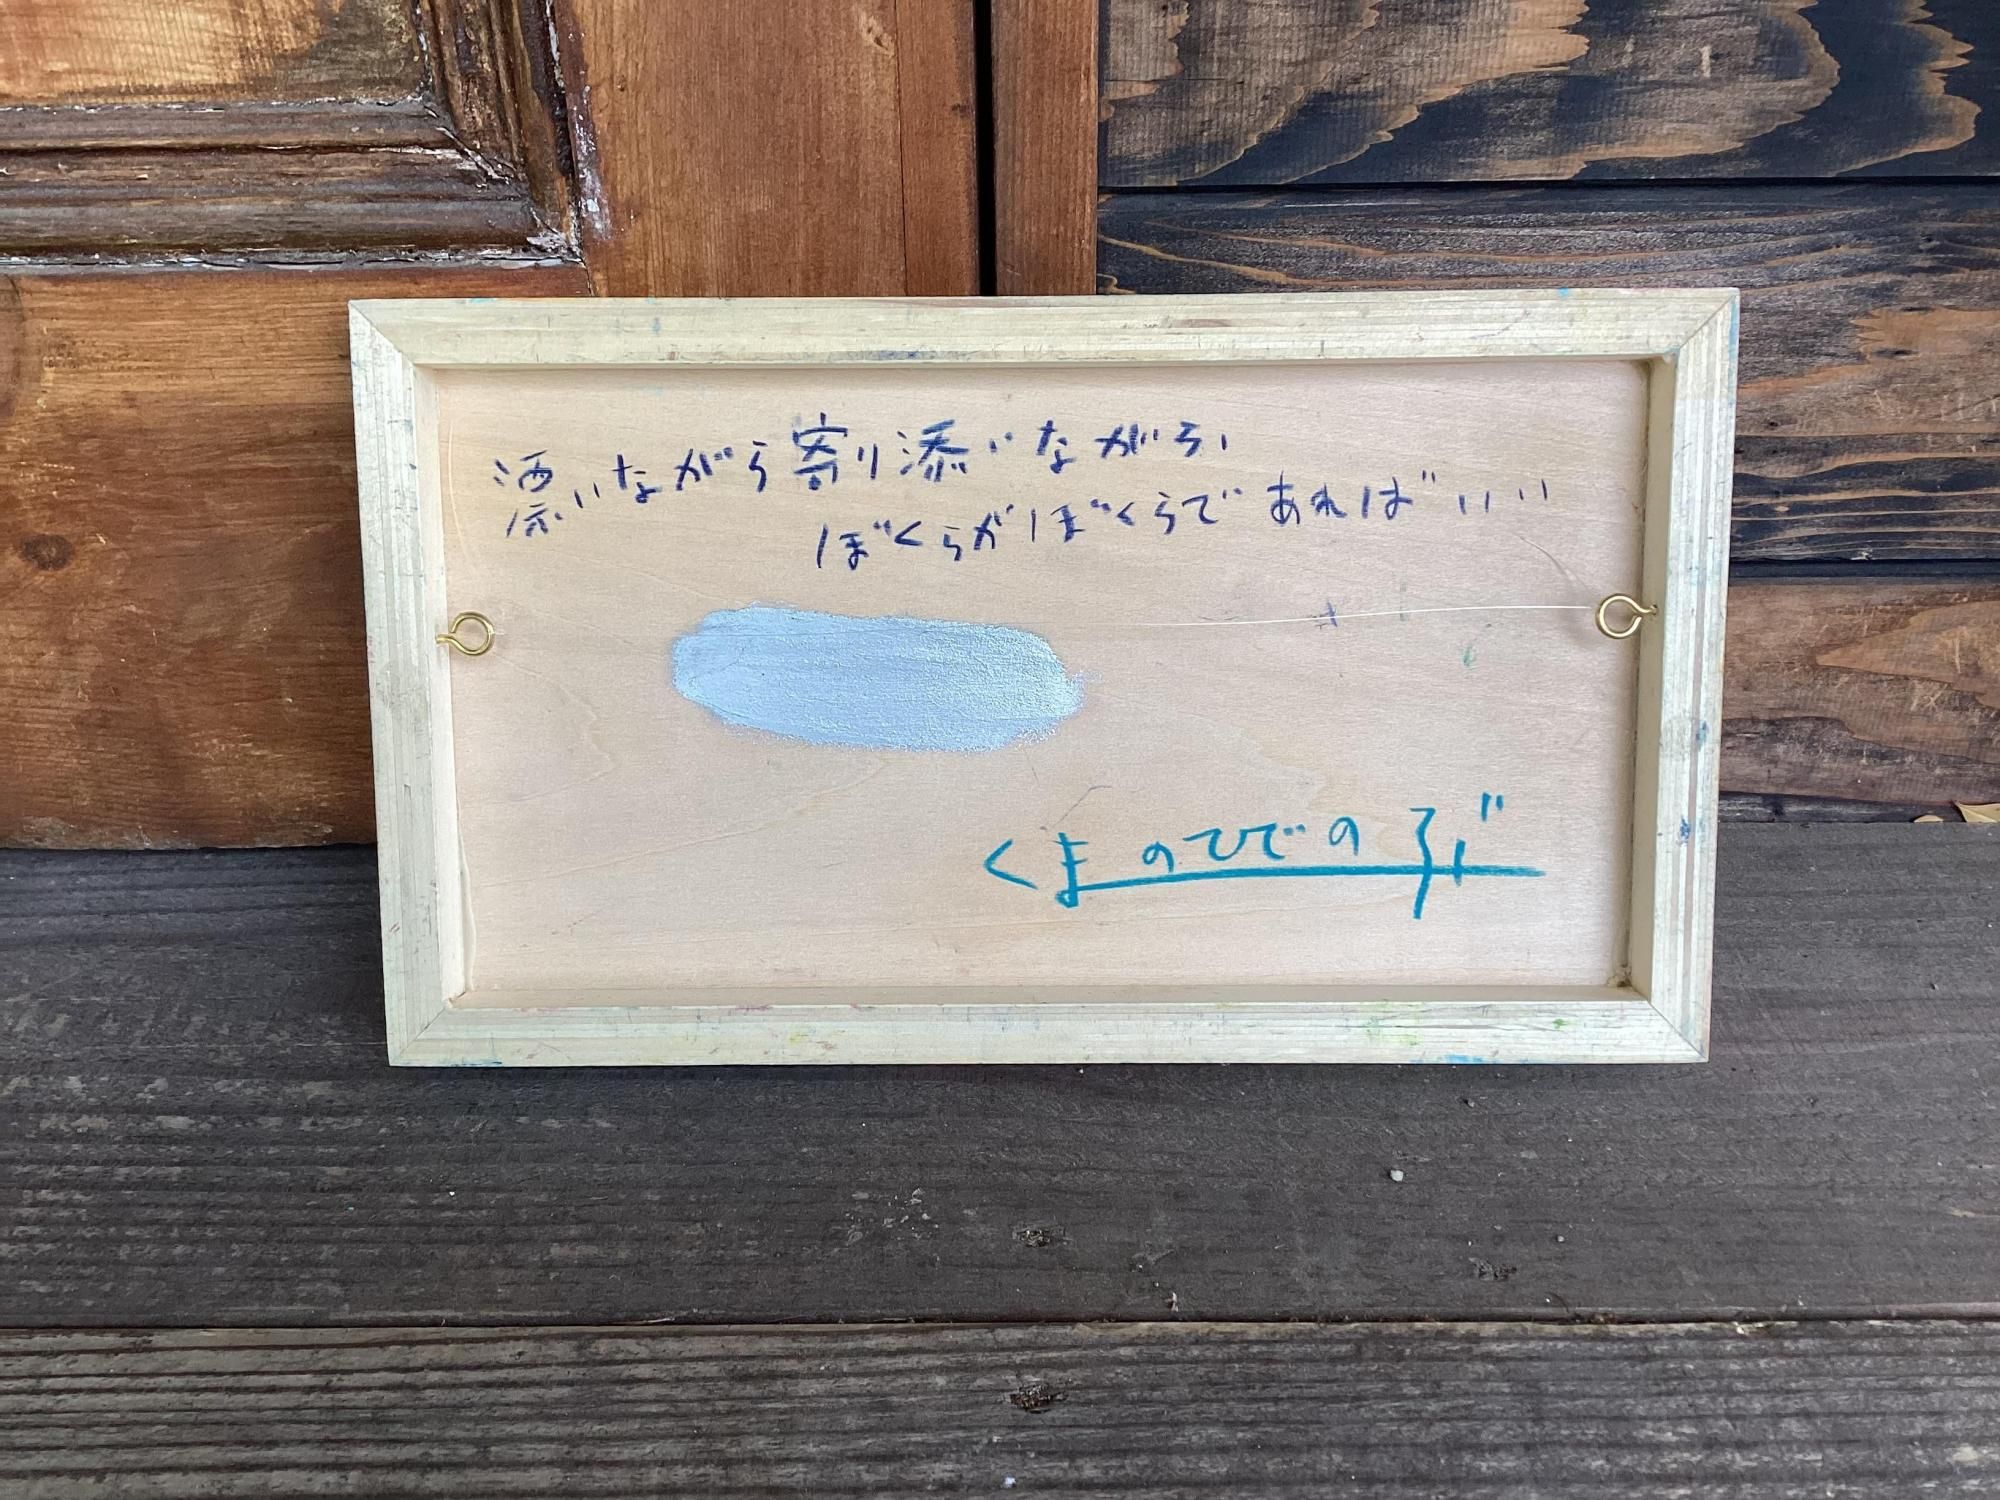 漂いながら寄り添いながら、
ぼくらがぼくらであればいい
くまのひでのぶ